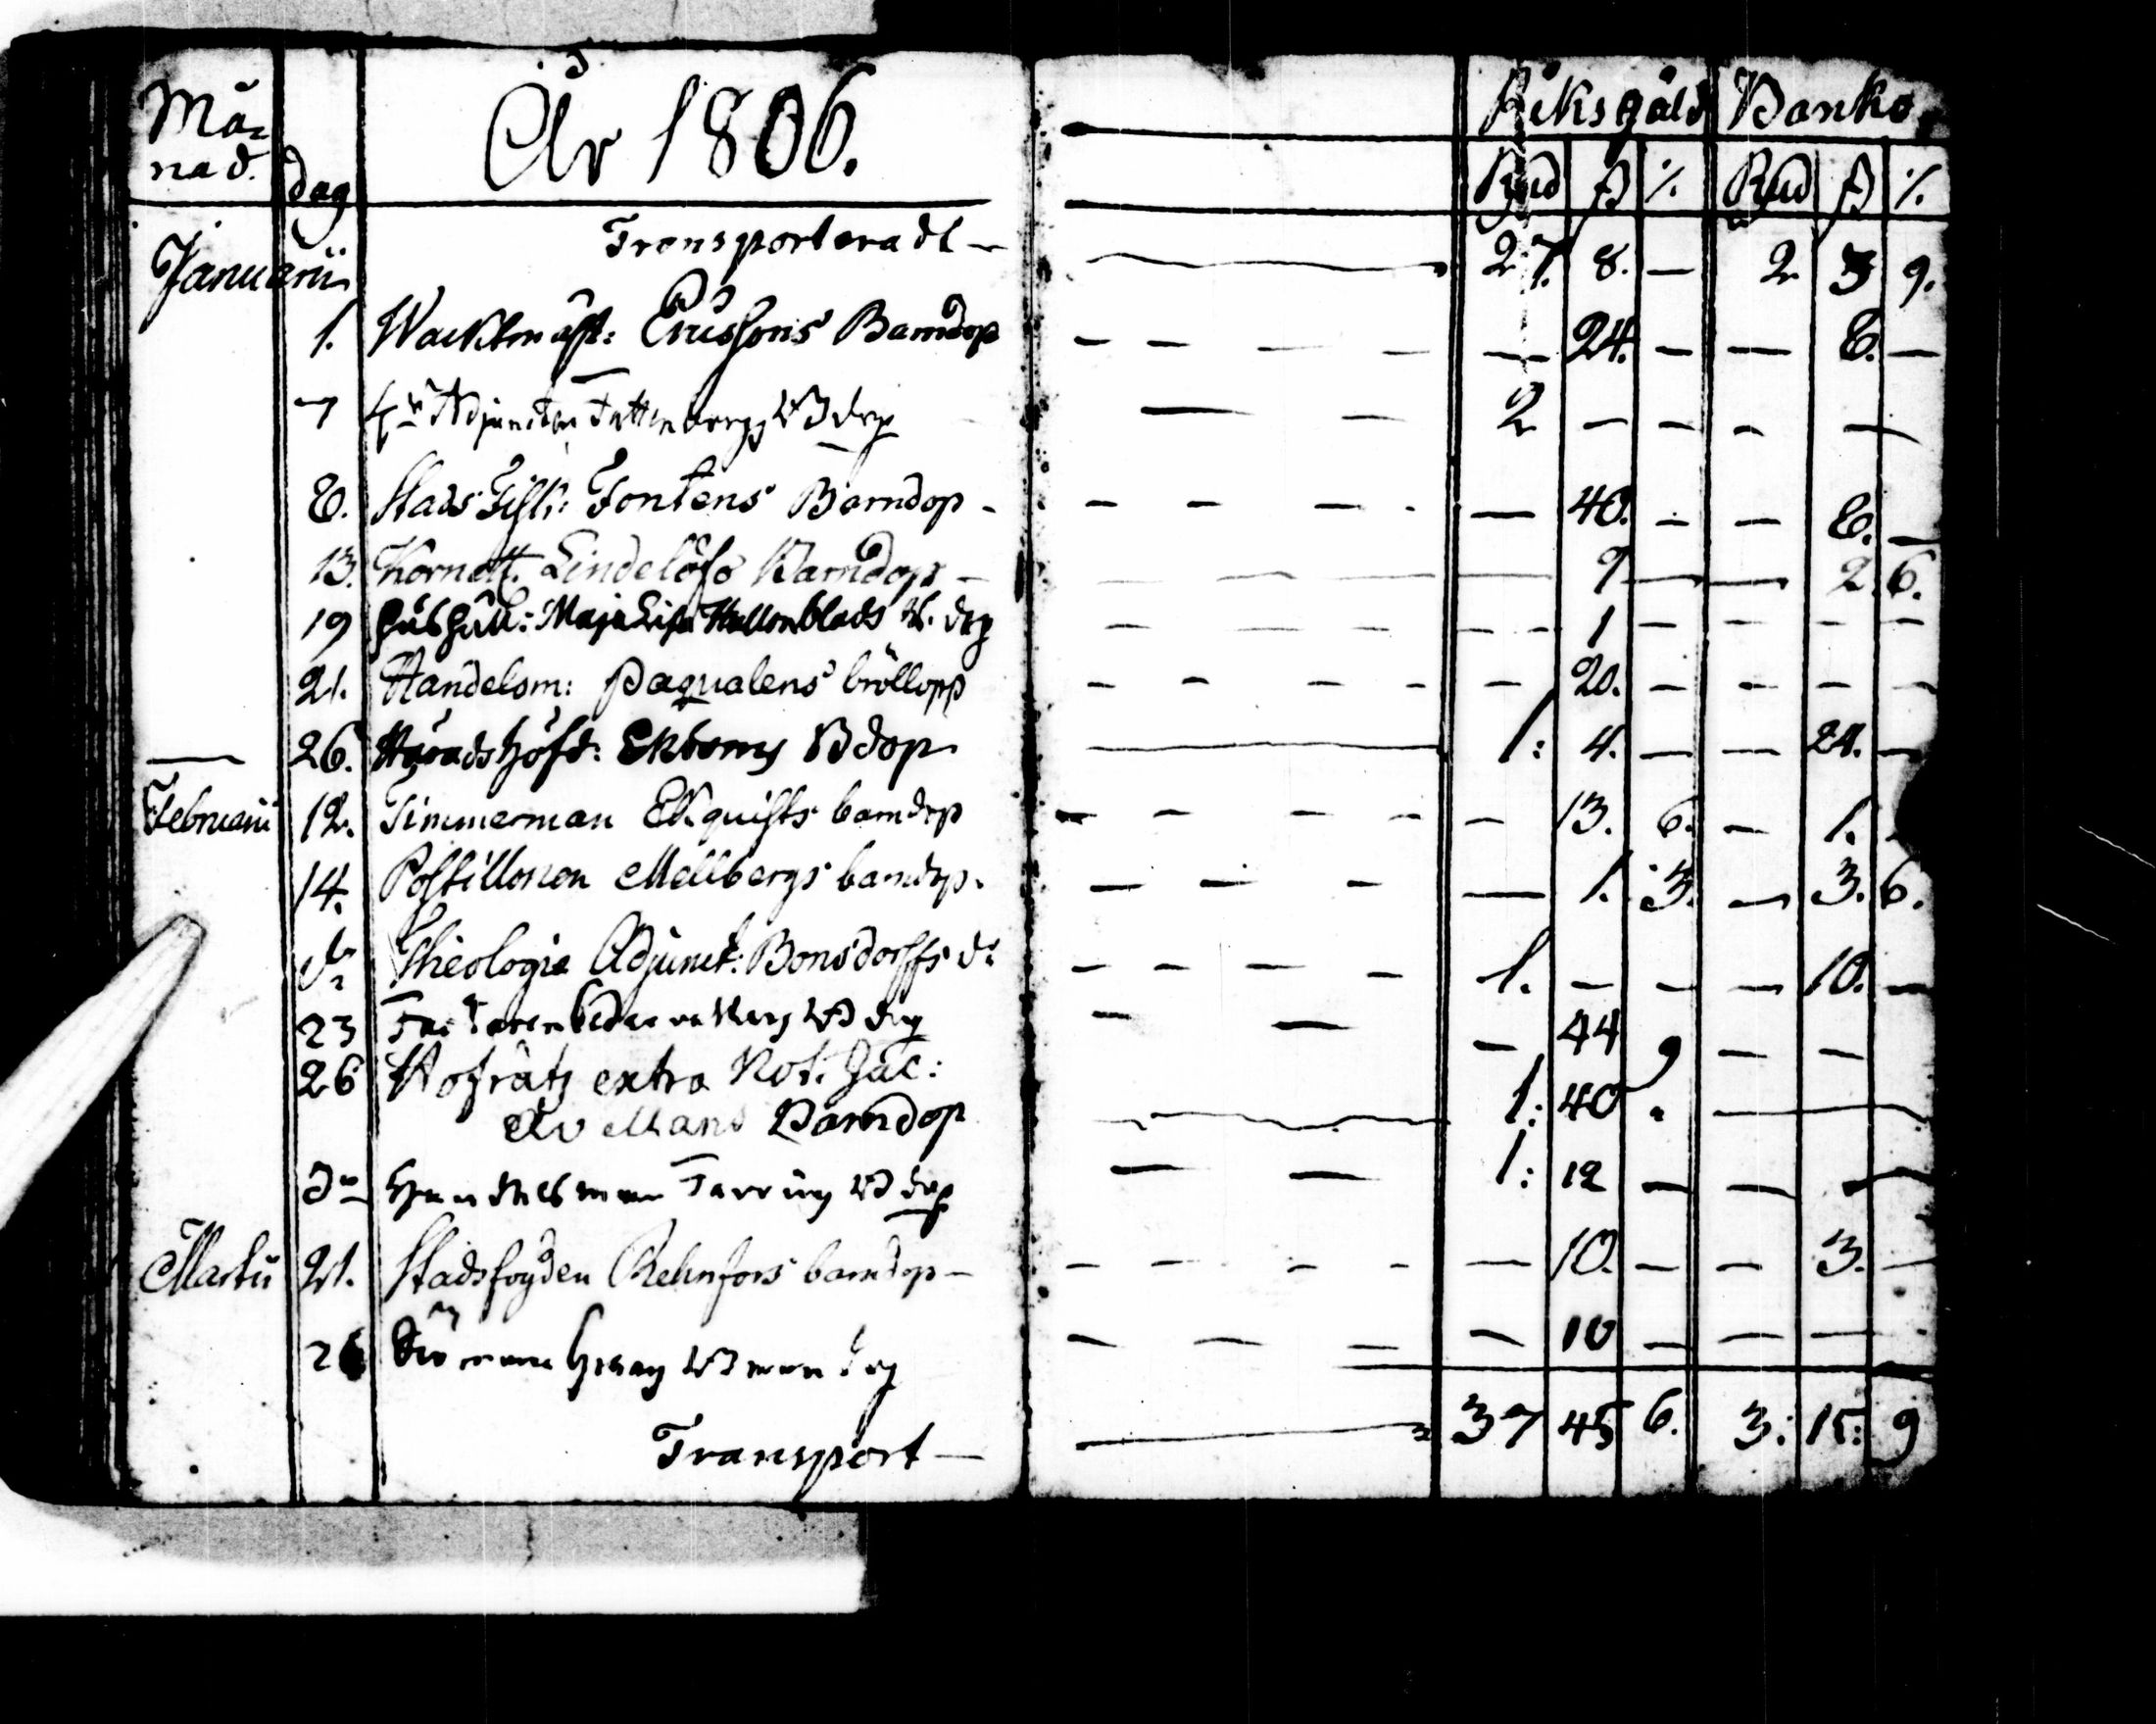 Må= År 1806. Riksgäld Banko
nad. dag Rd ß /. Rd ß /.
Januarii Transporteradt — 27. 8. — 2 3 9.
1. Wacktmäst: Ericssons Barndop — — — — — 24. — — 8. —
7 Adjuncten B dop — — 2 — — — —
8. Stads Fisk: Fontens Barndop - — — — - — 40. — — 8. —
13. Kornett. Lindelöfs Barndop — — — — — 9 — — 2 6.
19 Hushåll: Maja Lisa Hellonblads B. dop — — — — — 1 — — — —
21. Handelsm: Paqualens bröllopp — — — — — 20. — — — —
26. Häradshöfd: Ekboms Bdop. — 1: 4. — — 24. —
Februarii 12. Timmerman Ekquists barndop — — — — 13. 6. — 1.
14. Postillonen Mellbergs barndop. — — — — 1. 3. — 3. 6.
do Theologie Adjunct: Bonsdorffs do — — — — 1. — — — 10. —
23 B dop — — — 44 9 — —
26 Hofrätz extra Not. Jac:
Barndop — 1: 40 —
do Handelsman Tarring B dop — — 1: 12 — — —
Martii 21. Stadsfogden Rehnfors barndop — — — — — — 10. — — 3. —
26 — — — — 10 — — —
Transport — 37 45 6. 3: 15: 9